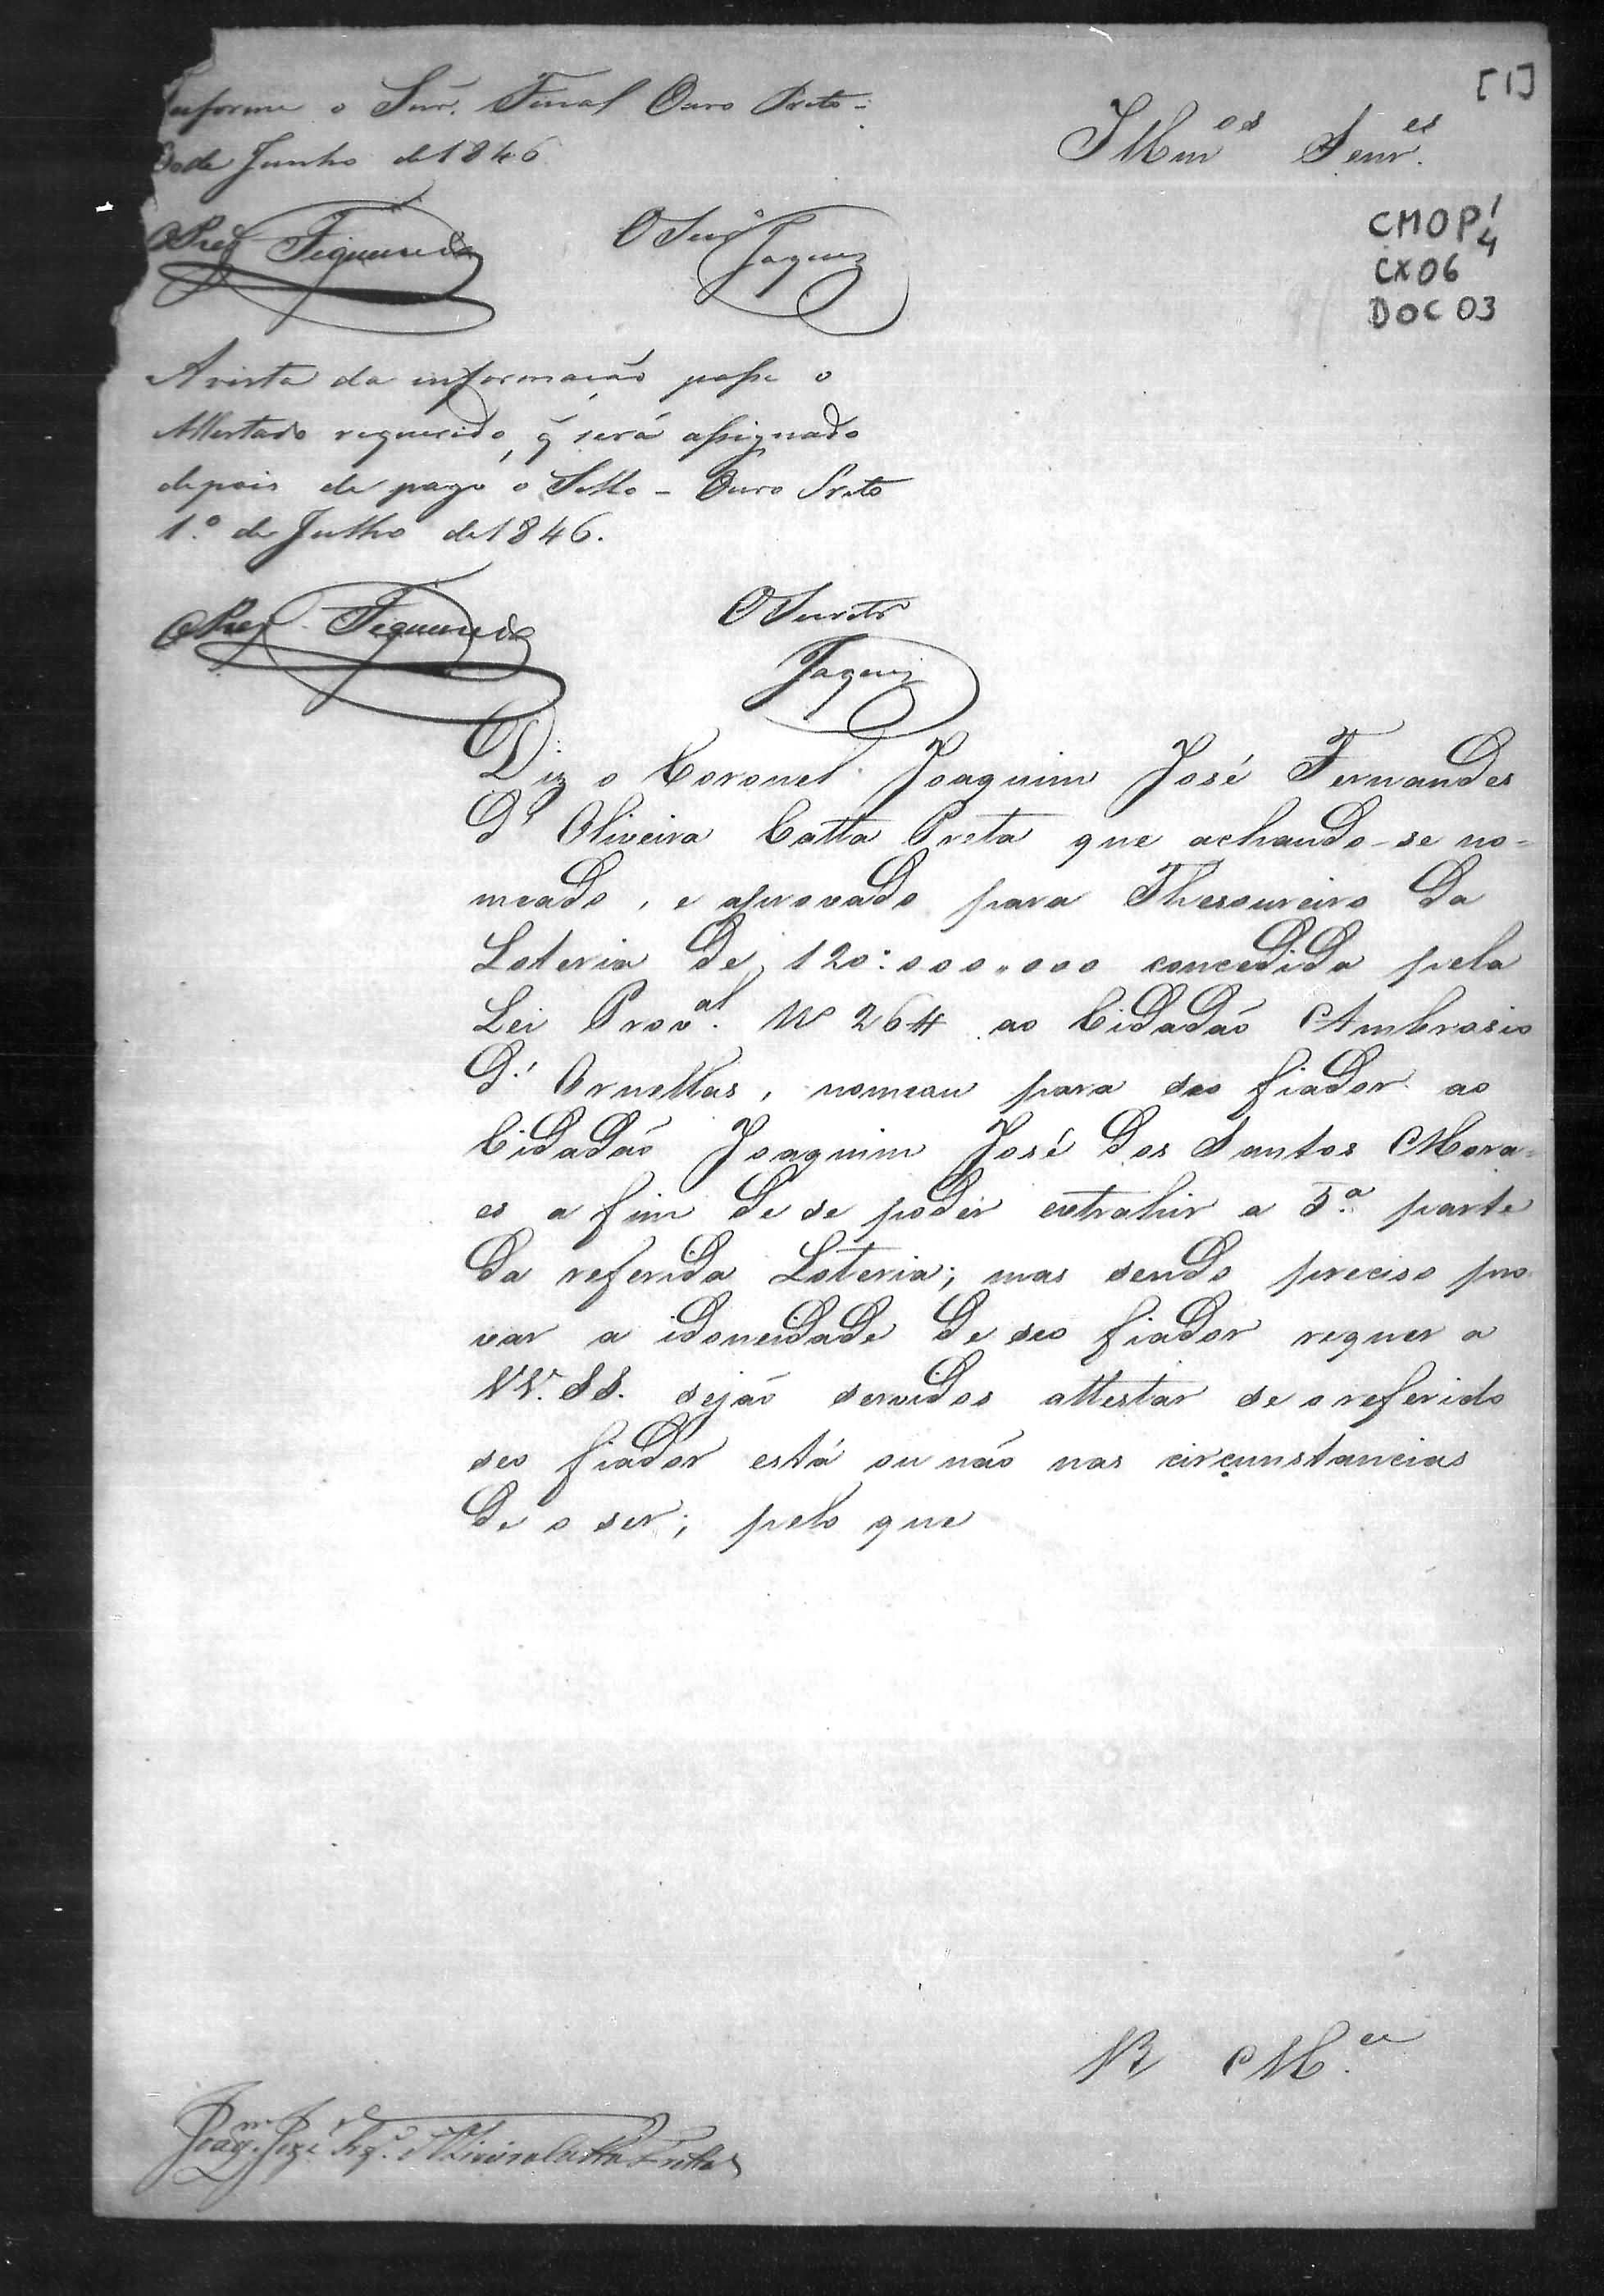 [1]
Informe o Snr. Fiscal Ouro Preto -
30 de Junho de 1846
Illm.os Senr.es
CMOP 1/4
CX06
DOC 03
O Prez Figueiredo
O Secr.o
A vista da informação passe o
Attestado requerido, q̃ será assignado
depois de pago o Sello - Ouro Preto
1.º de Julho de 1846.
O Prez. Figueiredo
O Secretr.
Diz o Coronel Joaquim José Fernandes
d' Oliveira Catta Preta que achando-se no=
meado, e aprovado para Thesoureiro da
Loteria de 120:000,,000 concedida pela
Lei Prov.al Nº 264 ao Cidadão Ambrosio
d' Ornellas, nomeou para seo fiador ao
Cidadão Joaquim José dos Santos Mora=
es a fim de se poder extrahir a 5.ª parte
da referida Loteria; mas sendo preciso pro
var a idoneidade de seo fiador requer a
VV. SS. sejão servidos attestar se o referido
seo fiador está ou não nas circunstancias
de o ser; pelo que
R M.ce
Joaq.m José Frz.' d'Oliveira Catta Pretta